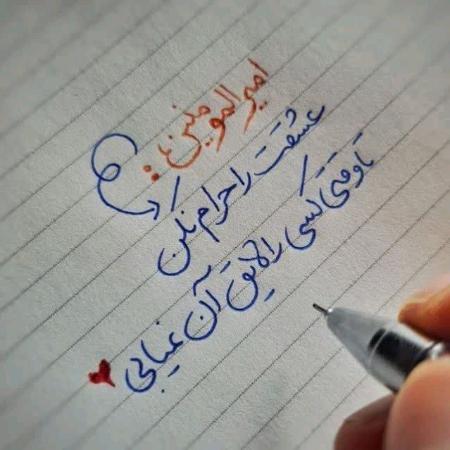 امیرالمومنین؛:
عشقت را حرام نکن
تا وقتی کسی را لایق آن نمیابی